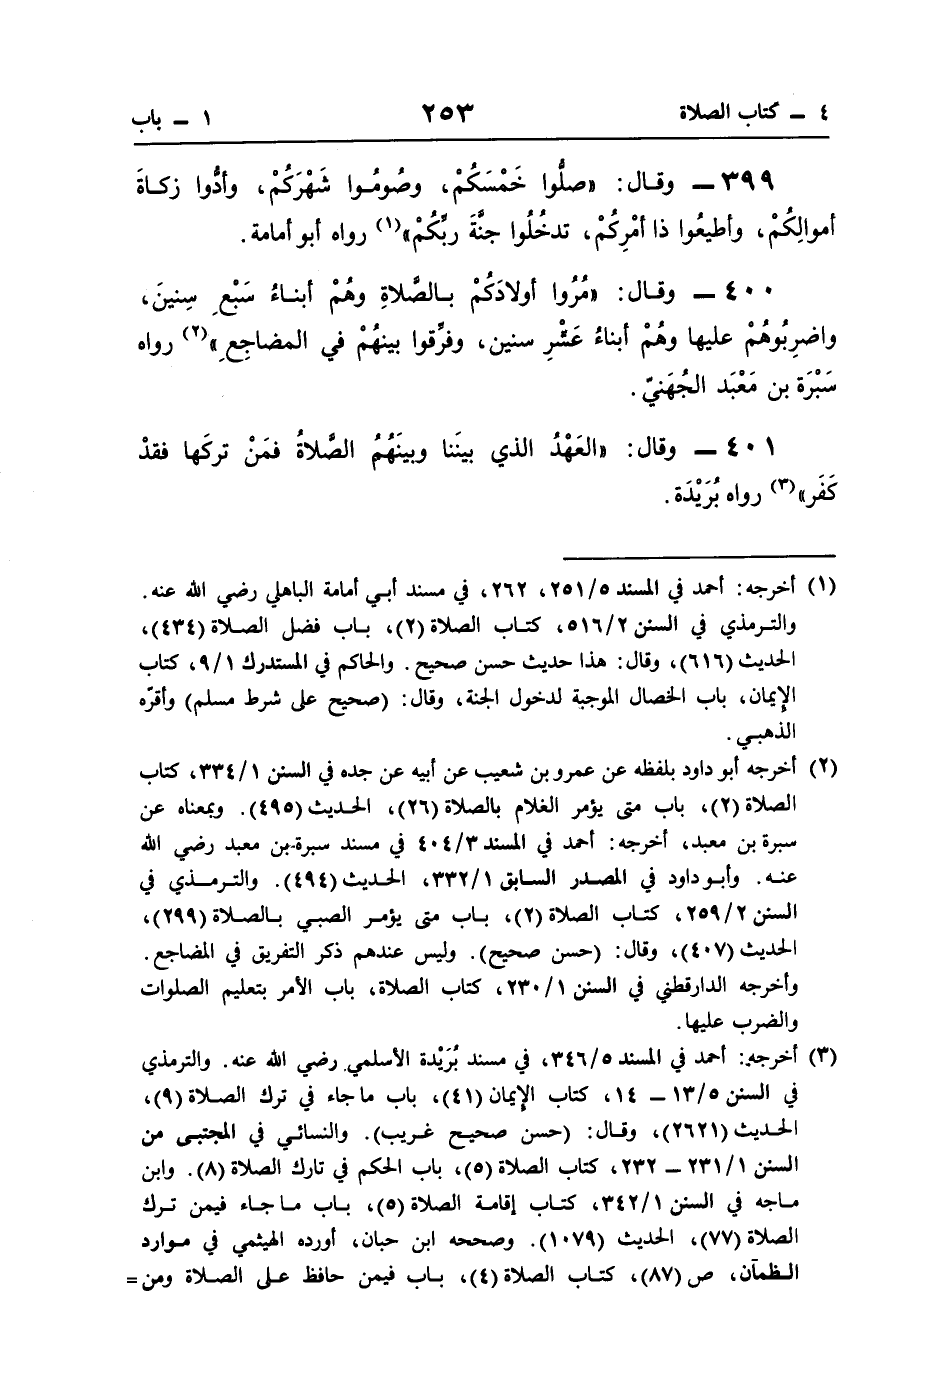 ٤ ــ كتاب الصلاة ٢٥٣ ١ ــ باب
٣٩٩ ــ وقال: «صلُّوا خَمْسَكُمْ، وصُومُوا شَهْرَكُمْ، وأدُّوا زكاةَ
أموالِكُمْ، وأطيعُوا ذا أمْرِكُمْ، تدخُلُوا جنَّةَ ربِّكُمْ»(١) رواه أبو أمامة.
٤٠٠ ــ وقال: «مُرُوا أولادَكُمْ بالصَّلاةِ وهُمْ أبناءُ سَبْعِ سِنينَ،
واضرِبُوهُمْ عليها وهُمْ أبناءُ عَشْرِ سنين، وفرِّقوا بينهُمْ في المضاجعِ»(٢) رواه
سَبْرَة بن مَعْبَد الجُهَنيّ.
٤٠١ ــ وقال: «العَهْدُ الذي بيننَا وبينَهُمُ الصَّلاةُ فمَنْ تركَها فقدْ
كَفَر»(٣) رواه بُرَيْدَة.
(١) أخرجه: أحمد في المسند ٥/٢٥١، ٢٦٢، في مسند أبي أمامة الباهلي رضي الله عنه.
والترمذي في السنن ٢/٥١٦، كتاب الصلاة (٢)، باب فضل الصلاة (٤٣٤)،
الحديث (٦١٦)، وقال: هذا حديث حسن صحيح. والحاكم في المستدرك ١/٩، كتاب
الإيمان، باب الخصال الموجبة لدخول الجنة، وقال: (صحيح على شرط مسلم) وأقرّه
الذهبي.
(٢) أخرجه أبو داود بلفظه عن عمرو بن شعيب عن أبيه عن جده في السنن ١/٣٣٤، كتاب
الصلاة (٢)، باب متى يؤمر الغلام بالصلاة (٢٦)، الحديث (٤٩٥). وبمعناه عن
سبرة بن معبد، أخرجه: أحمد في المسند ٣/٤٠٤ في مسند سبرة بن معبد رضي الله
عنه. وأبو داود في المصدر السابق ١/٣٣٢، الحديث (٤٩٤). والترمذي في
السنن ٢/٢٥٩، كتاب الصلاة (٢)، باب متى يؤمر الصبي بالصلاة (٢٩٩)،
الحديث (٤٠٧)، وقال: (حسن صحيح). وليس عندهم ذكر التفريق في المضاجع.
وأخرجه الدارقطني في السنن ١/٢٣٠، كتاب الصلاة، باب الأمر بتعليم الصلوات
والضرب عليها.
(٣) أخرجه: أحمد في المسند ٥/٣٤٦، في مسند بُرَيْدة الأسلمي رضي الله عنه. والترمذي
في السنن ٥/١٣ ــ ١٤، كتاب الإيمان (٤١)، باب ما جاء في ترك الصلاة (٩)،
الحديث (٢٦٢١)، وقال: (حسن صحيح غريب). والنسائي في المجتبى من
السنن ١/٢٣١ ــ ٢٣٢، كتاب الصلاة (٥)، باب الحكم في تارك الصلاة (٨). وابن
ماجه في السنن ١/٣٤٢، كتاب إقامة الصلاة (٥)، باب ما جاء فيمن ترك
الصلاة (٧٧)، الحديث (١٠٧٩). وصححه ابن حبان، أورده الهيثمي في موارد
الظمآن، ص (٨٧)، كتاب الصلاة (٤)، باب فيمن حافظ على الصلاة ومن =